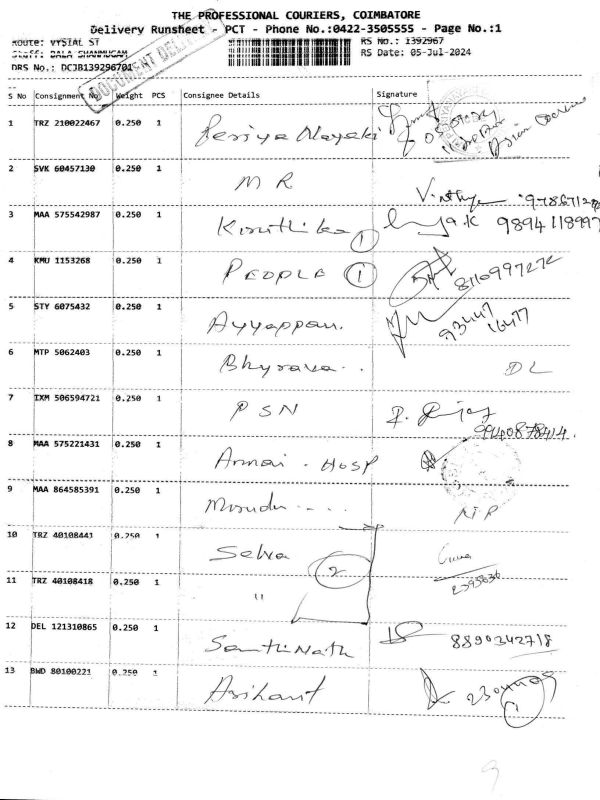 THE PROFESSIONAL COURIERS, COIMBATORE
Delivery Runsheet - PCT - Phone No.:0422-3505555 - Page No.:1
Route: VYSIAL ST
RS No.: 1392967
Staff: BALA SHANMUGAM
RS Date: 05-Jul-2024
DRS No.: DCJB139296701
DOCUMENT DELIVERY
S No Consignment No Weight PCS Consignee Details Signature
1 TRZ 210022467 0.250 1 Periya Nayaki
2 SVK 60457130 0.250 1 M R
3 MAA 575542987 0.250 1 Kiruthika 1 9894118997
4 KMU 1153268 0.250 1 PEOPLE 1 8110997272
5 STY 6075432 0.250 1 Ayyappan. 93447 16477
6 MTP 5062403 0.250 1 Bhyrava.. DL
7 IXM 506594721 0.250 1 PSN 9940878414
8 MAA 575221431 0.250 1 Annai - HOSP
9 MAA 864585391 0.250 1
10 TRZ 40108441 0.250 1 Selva 2
11 TRZ 40108418 0.250 1 " 2395636
12 DEL 121310865 0.250 1 SanthiNath 8890342718
13 BWD 80100221 0.250 1 Arihant 1
9